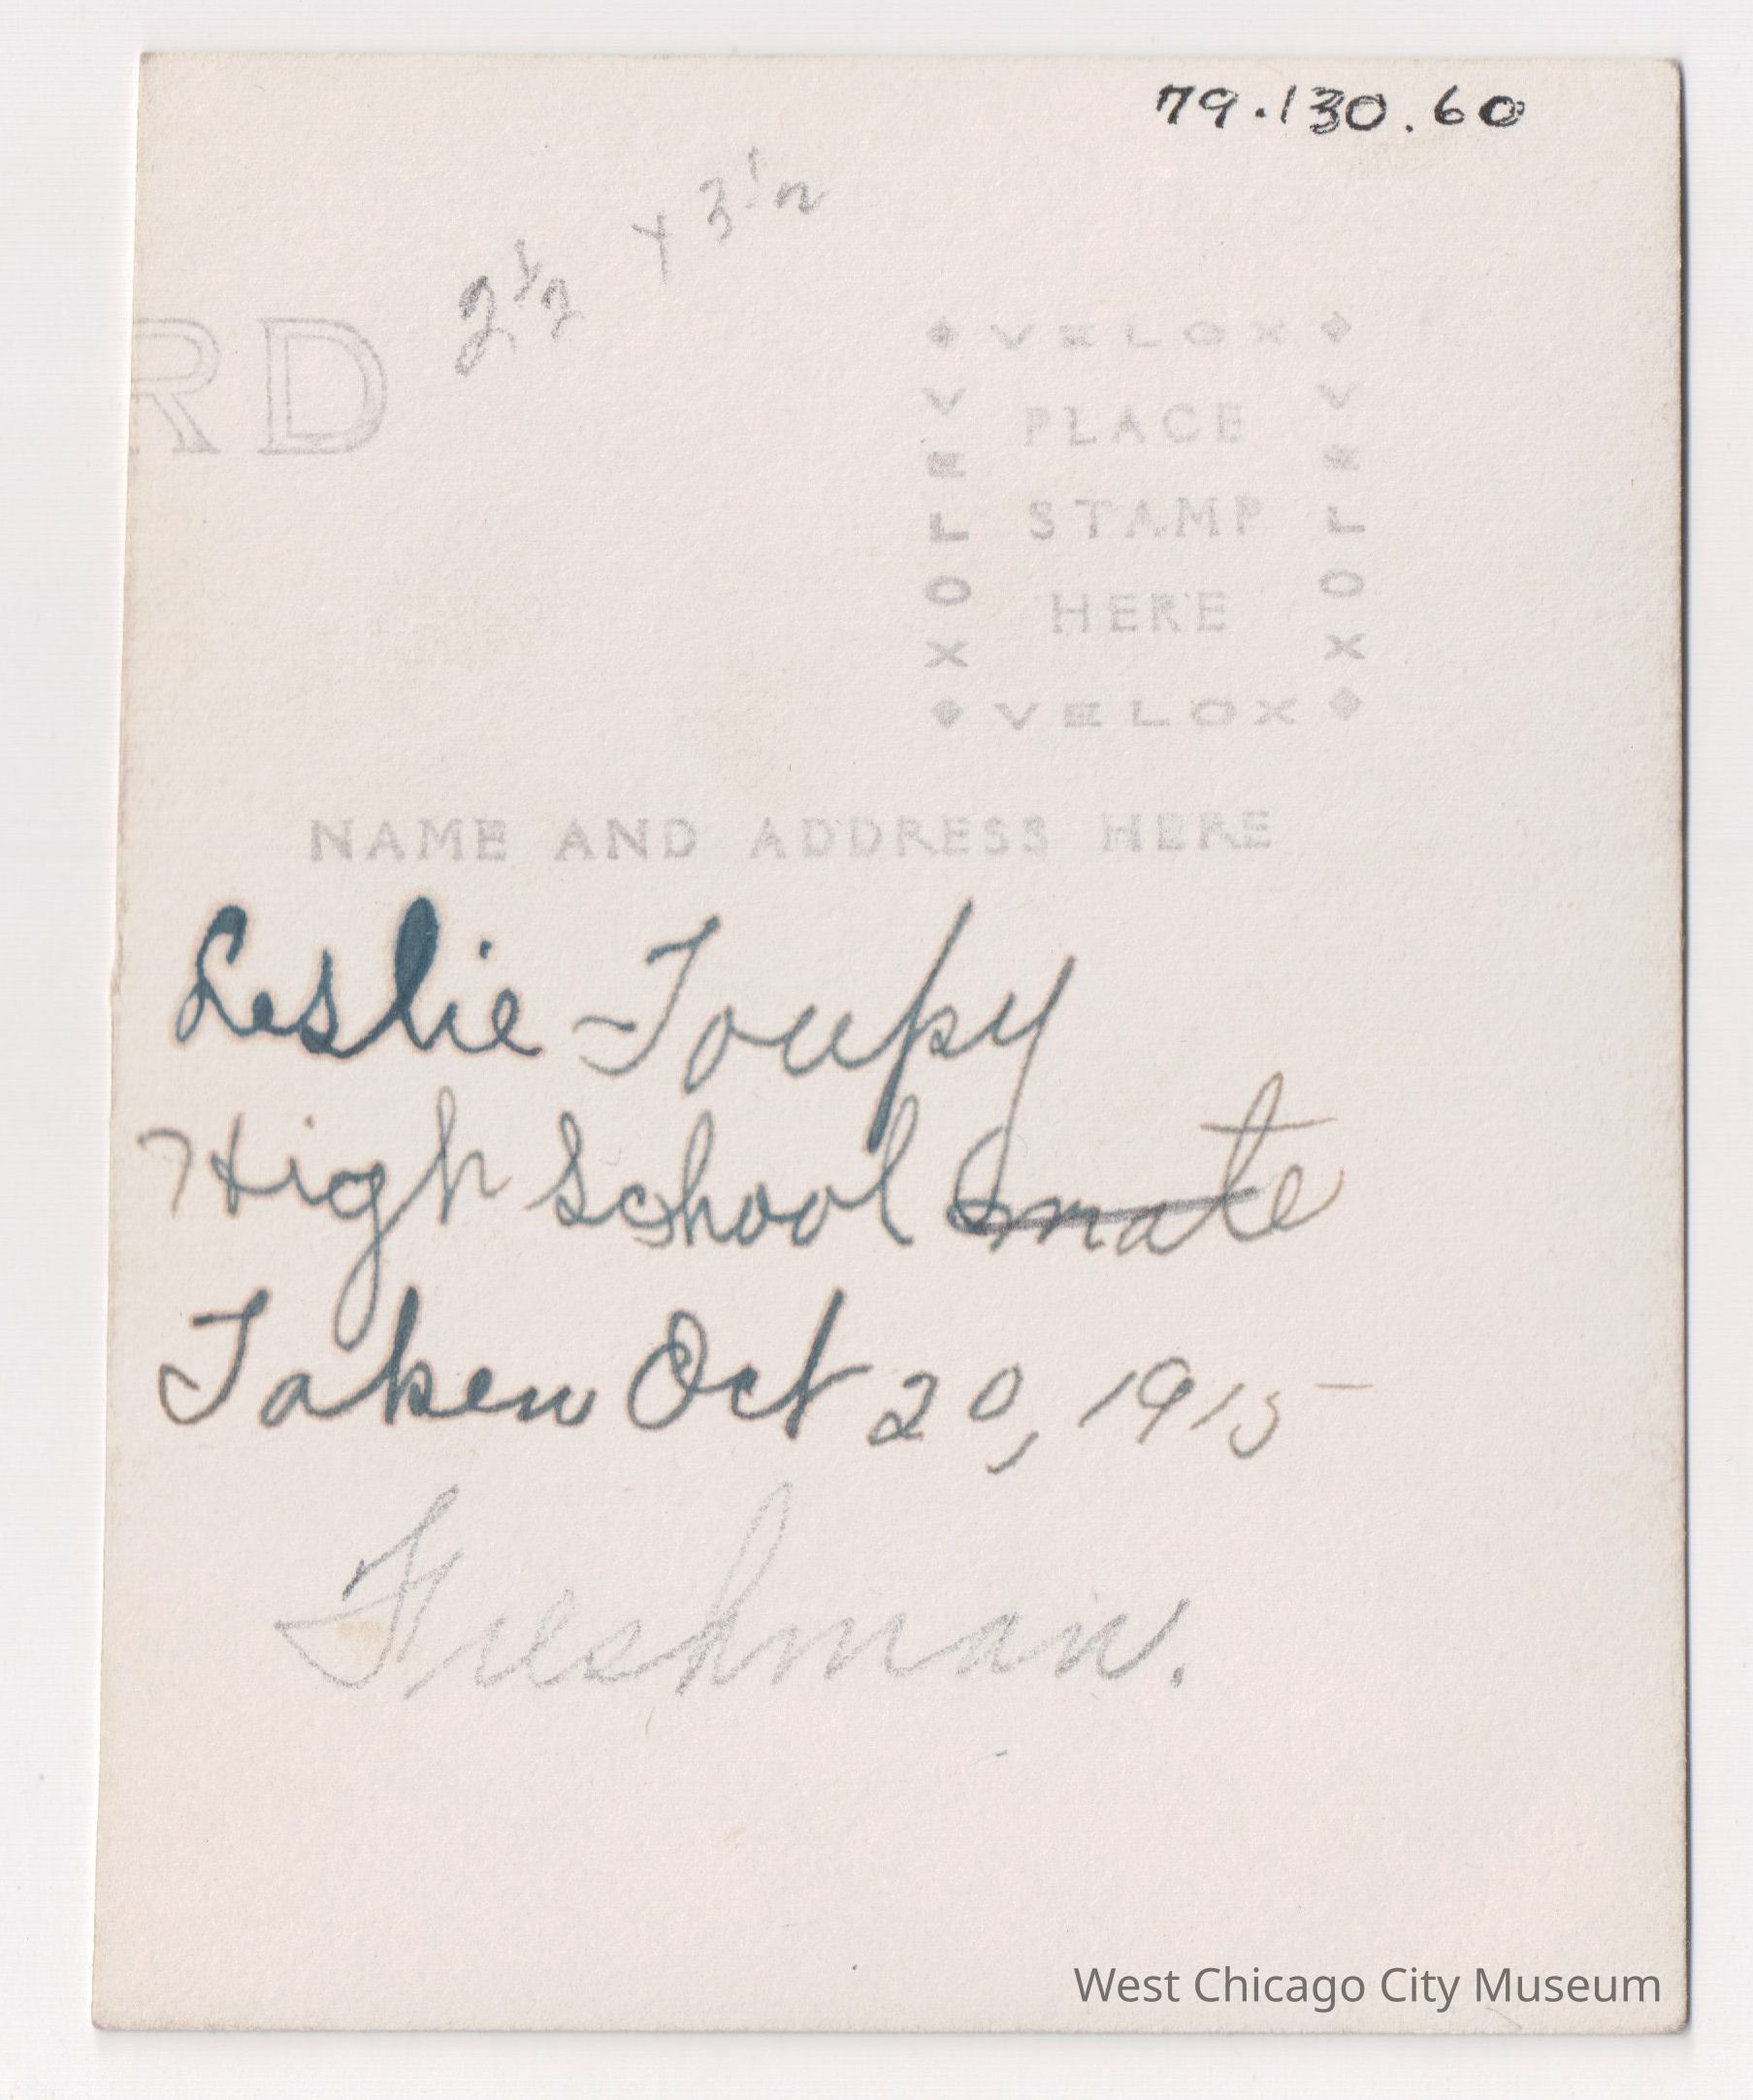 79.130.60
2 1/2 x 3 1/2
RD
VELOX
VELOX
PLACE
STAMP
HERE
VELOX
VELOX
NAME AND ADDRESS HERE
Leslie Toupy
High School mate
Taken Oct 20, 1915
Freshman.
West Chicago City Museum